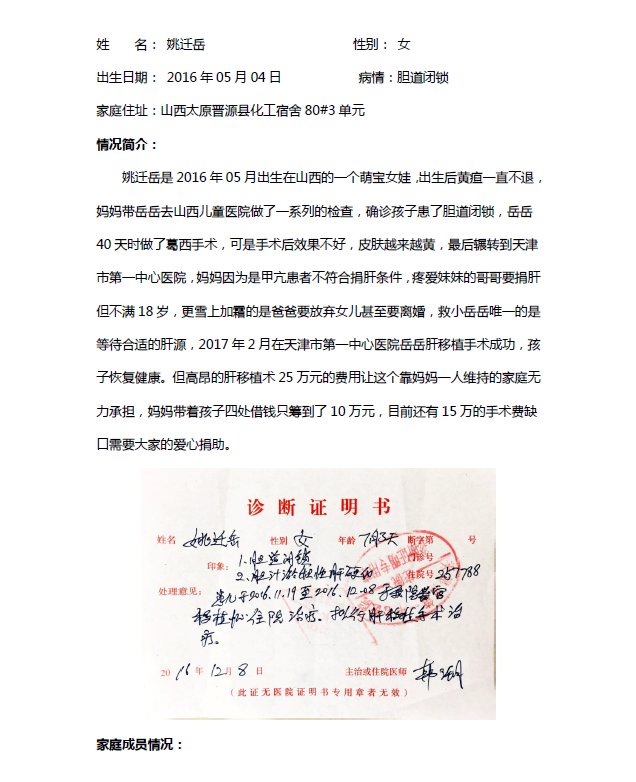 姓 名： 姚迁岳 性别： 女
出生日期： 2016 年 05 月 04 日 病情：胆道闭锁
家庭住址：山西太原晋源县化工宿舍 80#3 单元
情况简介：
姚迁岳是 2016 年 05 月出生在山西的一个萌宝女娃，出生后黄疸一直不退，
妈妈带岳岳去山西儿童医院做了一系列的检查，确诊孩子患了胆道闭锁，岳岳
40 天时做了葛西手术，可是手术后效果不好，皮肤越来越黄，最后辗转到天津
市第一中心医院，妈妈因为是甲亢患者不符合捐肝条件，疼爱妹妹的哥哥要捐肝
但不满 18 岁，更雪上加霜的是爸爸要放弃女儿甚至要离婚，救小岳岳唯一的是
等待合适的肝源，2017 年 2 月在天津市第一中心医院岳岳肝移植手术成功，孩
子恢复健康。但高昂的肝移植术 25 万元的费用让这个靠妈妈一人维持的家庭无
力承担，妈妈带着孩子四处借钱只筹到了 10 万元，目前还有 15 万的手术费缺
口需要大家的爱心捐助。
诊断证明书
姓名 姚迁岳 性别 女 年龄 7月3天 断字第 号
门诊号
印象： 1.胆道闭锁
2.胆汁淤积性肝硬化 住院号 257788
处理意见： 患儿于2016.11.19至2016.12.08于我院器官
移植科住院治疗。拟行肝移植手术治
疗。
2016 年 12 月 8 日 主治或住院医师
（此证无医院证明书专用章者无效）
家庭成员情况：